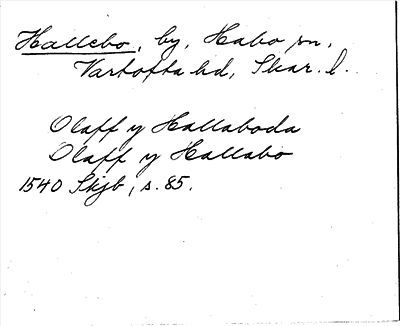 Hallebo, by, Habo sn,
Vartofta hd, Skar. l.
Olaff y Hallaboda
Olaff y Hallabo
1540 Skjb, s. 85.